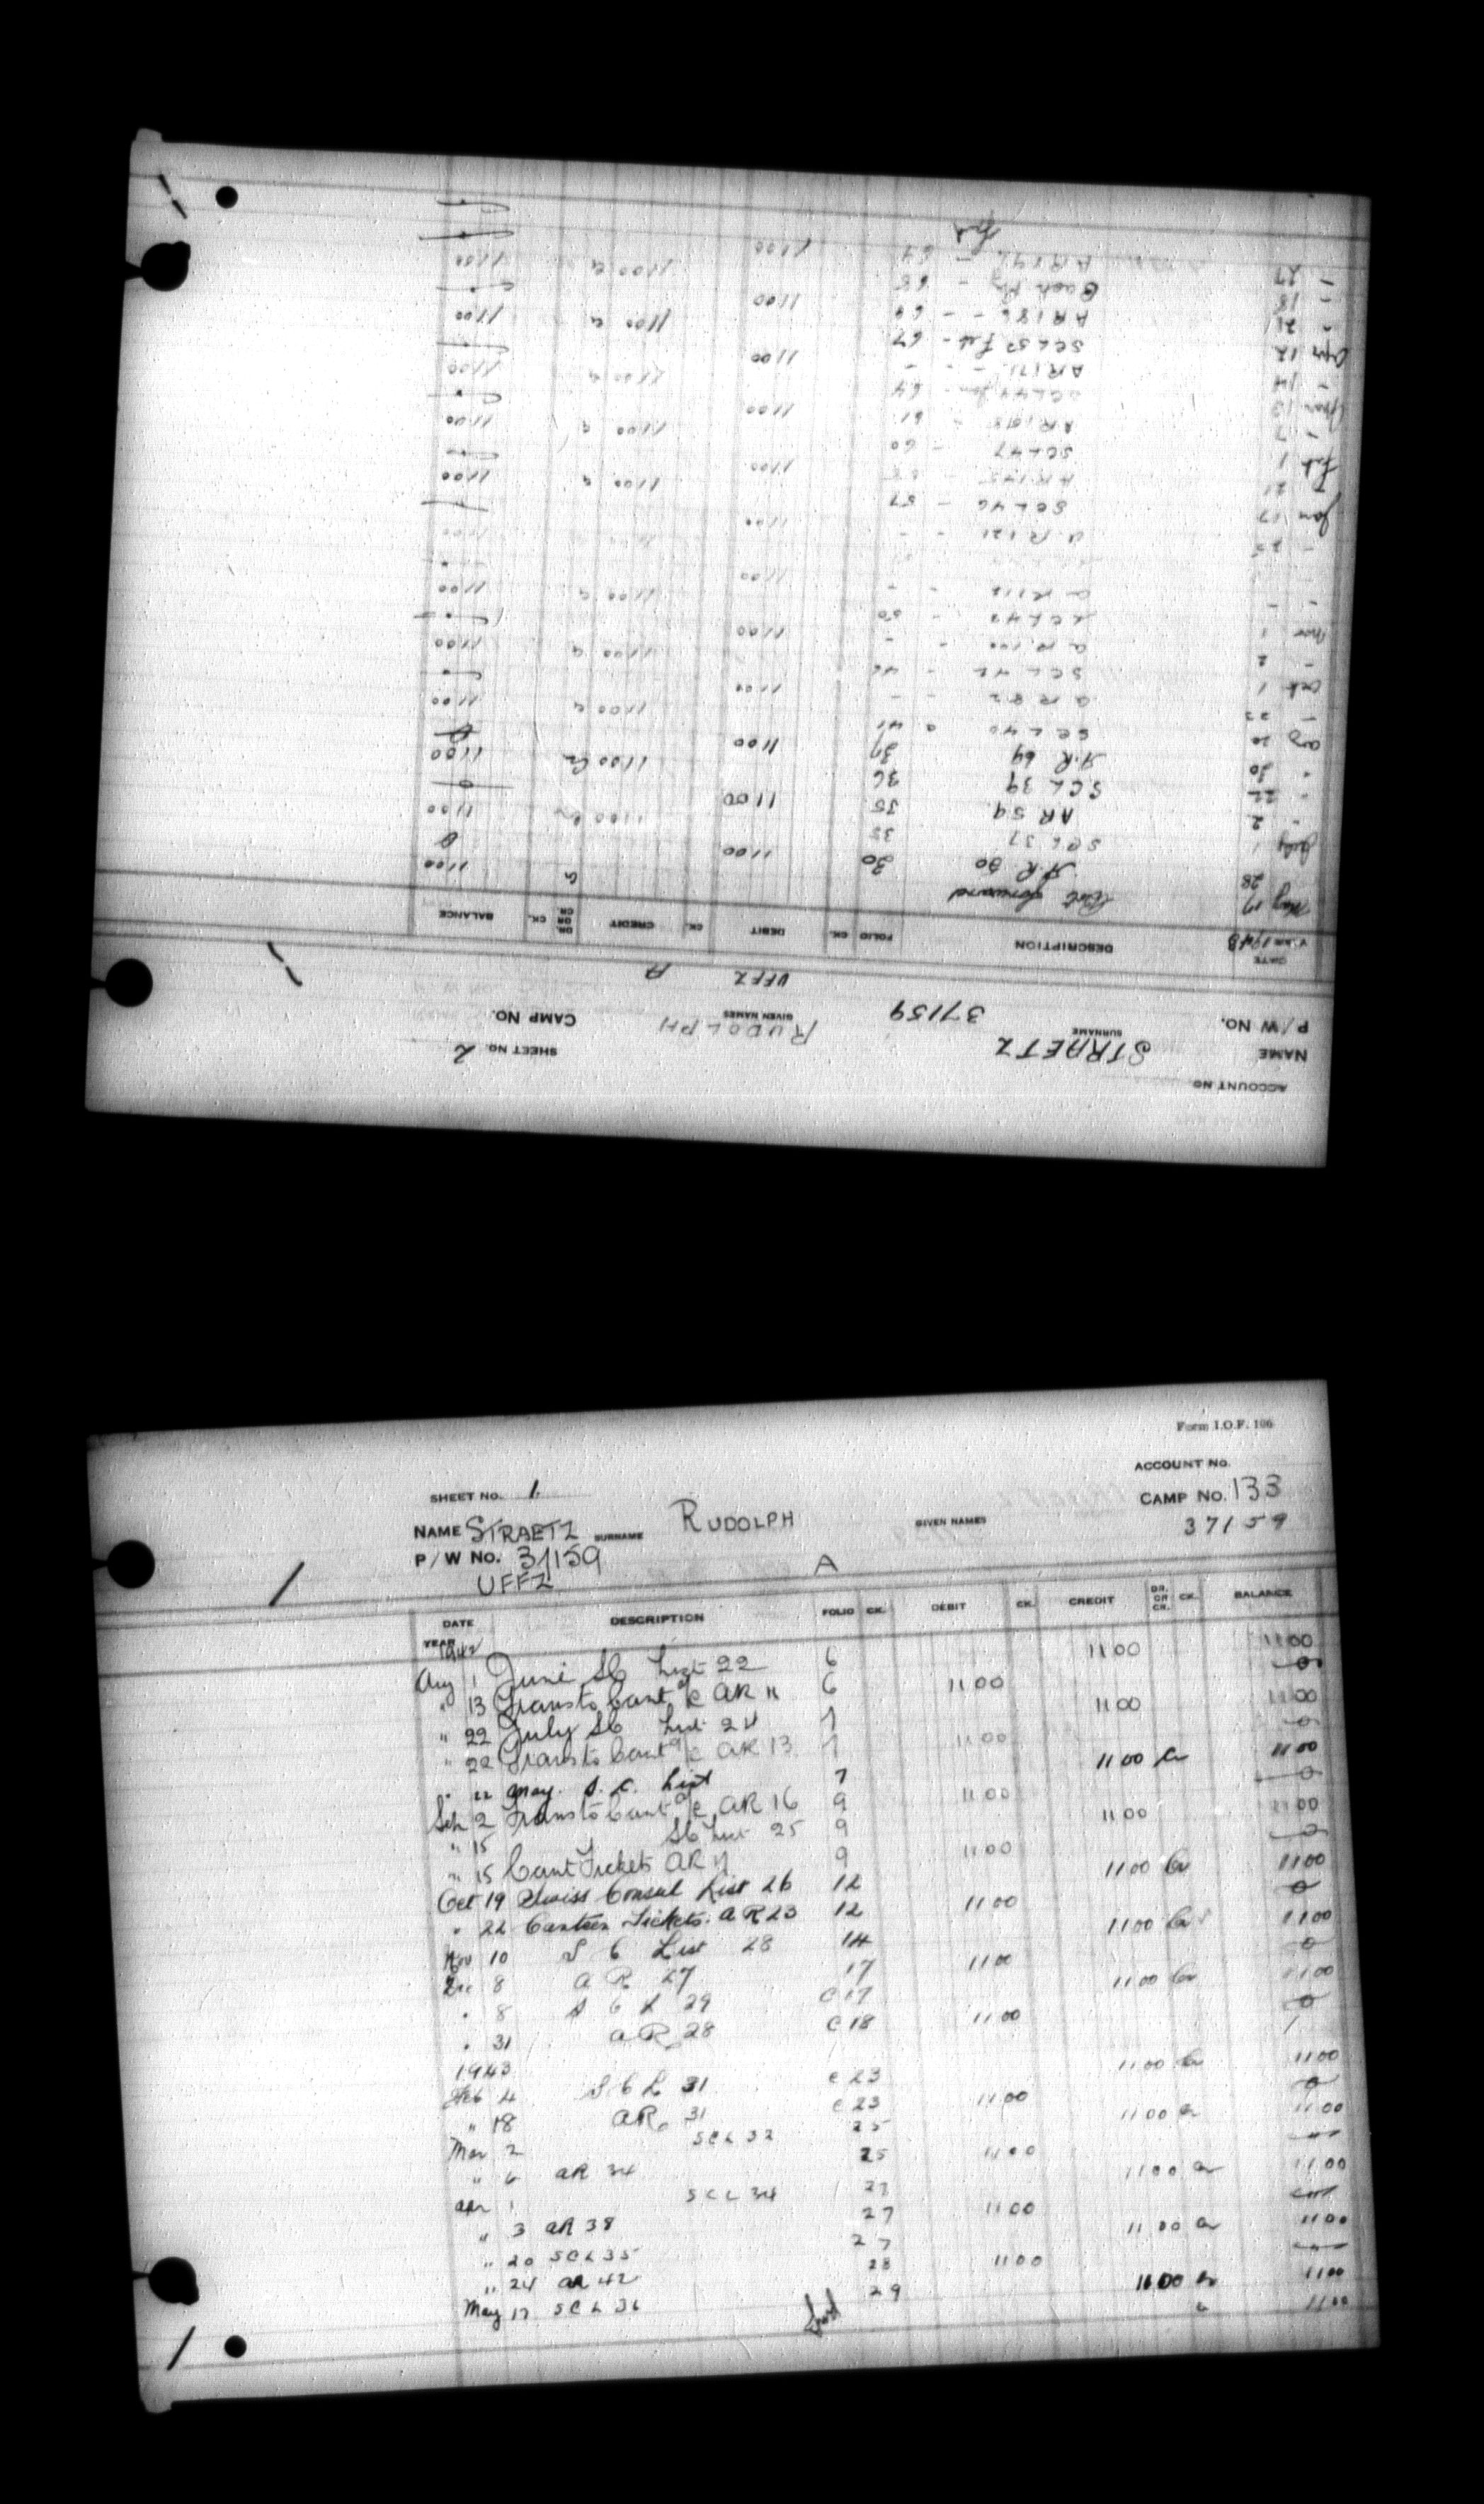 ACCOUNT NO.
NAME STRAETZ SURNAME RUDOLPH GIVEN NAMES SHEET NO. 2
P/W NO. 37159 CAMP NO.
UFFZ A
DATE DESCRIPTION FOLIO CK. DEBIT CK. CREDIT DR. OR CR. CK. BALANCE
1943
May 17 forward 1100
28 A.R. 50 30 1100 0
July 1 SCL 37 35 1100 Cr 1100
" 2 AR 59 35 1100 0
" 22 SCL 39 36 1100 Cr 1100
" 30 A.R. 69 37 1100 0
Aug 20 SCL 40 41 1100 1100
AR 82 1100
Oct 1 SCL 42 46 1100 1100
- 2 AR 100 1100
Nov 1 SCL 43 50 1100 1100
AR 112 1100
1100
- 25 AR 121 1100
Jan 17 SCL 46 - 57 1100 1100
21 1100
Feb 1 SCL 47 - 60 1100 1100
- 7 1100
Mar 13 64 1100 1100
- 14 AR 171 - - 1100
Apr 12 SCL 50 Feb - 67 1100 1100
" 21 AR 186 - - 69 1100
- 18 68 1100 1100
- 27 AR 196 - 69 1100
Form I.O.F. 106
ACCOUNT NO.
SHEET NO. 1. CAMP NO. 133
NAME STRAETZ SURNAME RUDOLPH GIVEN NAMES 37159
P/W NO. 37159
UFFZ A
DATE DESCRIPTION FOLIO CK. DEBIT CK. CREDIT DR. OR CR. CK. BALANCE
YEAR 1942
Aug 1 June SC List 22 6 1100 1100
" 13 Trans to Cant a/c AR 11 6 1100 0
" 22 July SC List 24 7 1100 1100
" 22 Trans to Cant a/c AR 13 7 1100 0
" 22 May. S.C. List 7 1100 Cr 1100
Sep 2 Trans to Cant a/c AR 16 9 1100 0
" 15 SC List 25 9 1100 1100
" 15 Cant Tickets AR 17 9 1100 0
Oct 19 Swiss Consul List 26 12 1100 Cr 1100
" 22 Canteen Tickets. AR 23 12 1100 0
Nov 10 S C List 28 14 1100 Cr 1100
Dec 8 A R 27 17 1100 0
" 8 S C L 29 C17 1100 Cr 1100
" 31 AR 28 C18 1100 0
1943
Feb 4 S C L 31 C23 1100 Cr 1100
" 18 AR 31 C23 1100 0
Mar 2 SCL 32 25 1100 Cr 1100
" 6 AR 34 25 1100
Apr 1 SCL 34 27 1100 Cr 1100
" 3 AR 38 27 1100
" 20 SCL 35 27 1100 Cr 1100
" 24 AR 42 28 1100
May 17 SCL 36 29 1100 Cr 1100
fwd 1100